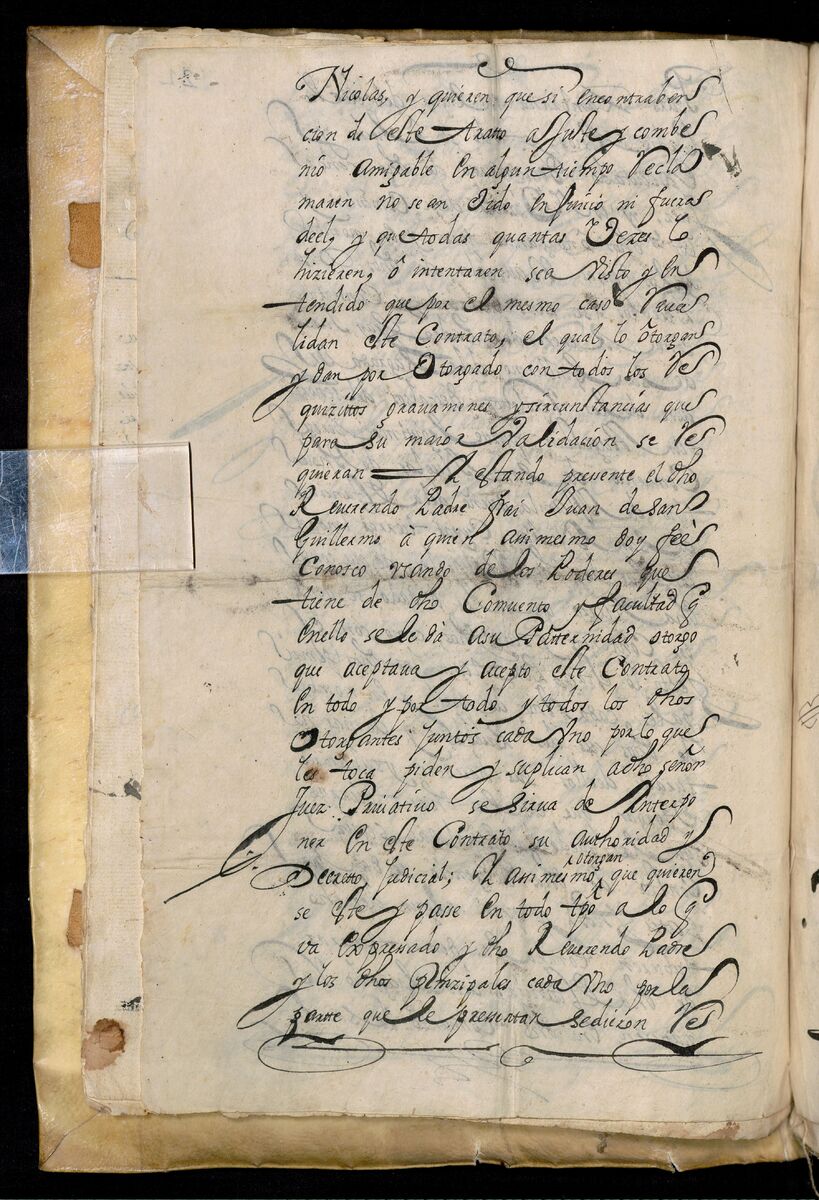 Nicolas, y quieren que si encontraber
cion de este tratto ajuste y combe
nio amigable en algun tiempo recla
maren no sean oido en Juicio ni fuera
del, y que todas quantas Vezes lo
hizieren, ô intentaren sea visto y en
tendido que por el mesmo caso reva
lidan este Contrato, el qual lo otorgan
y dan por Otorgado con todos los re
quizittos gravamenes y sircunstancias que
para su maior Validacion se re
quieran = Y estando pressente el dho
Reverendo Padre frai Juan de san
Guillermo â quien asimesmo doy feè
Conosco usando de los Poderes que
tiene de dho Comuento y facultad q
en ello se le dà a su Patternidad otorgo
que aceptaua y acepto este Contrato
en todo y por todo y todos los dhos
Otorgantes Juntos cada Uno por lo que
les toca piden y suplican a dho señor
Juez Privativo se sirva de Interpo
ner en este Contrato su authoridad y
Decretto Judicial; Y assimesmo otorgan que quieren
se este y passe en todo tpo a lo q
va expressado y dho Reverendo Padre
y los dhos principales cada Uno por la
partte que representan se dieron re